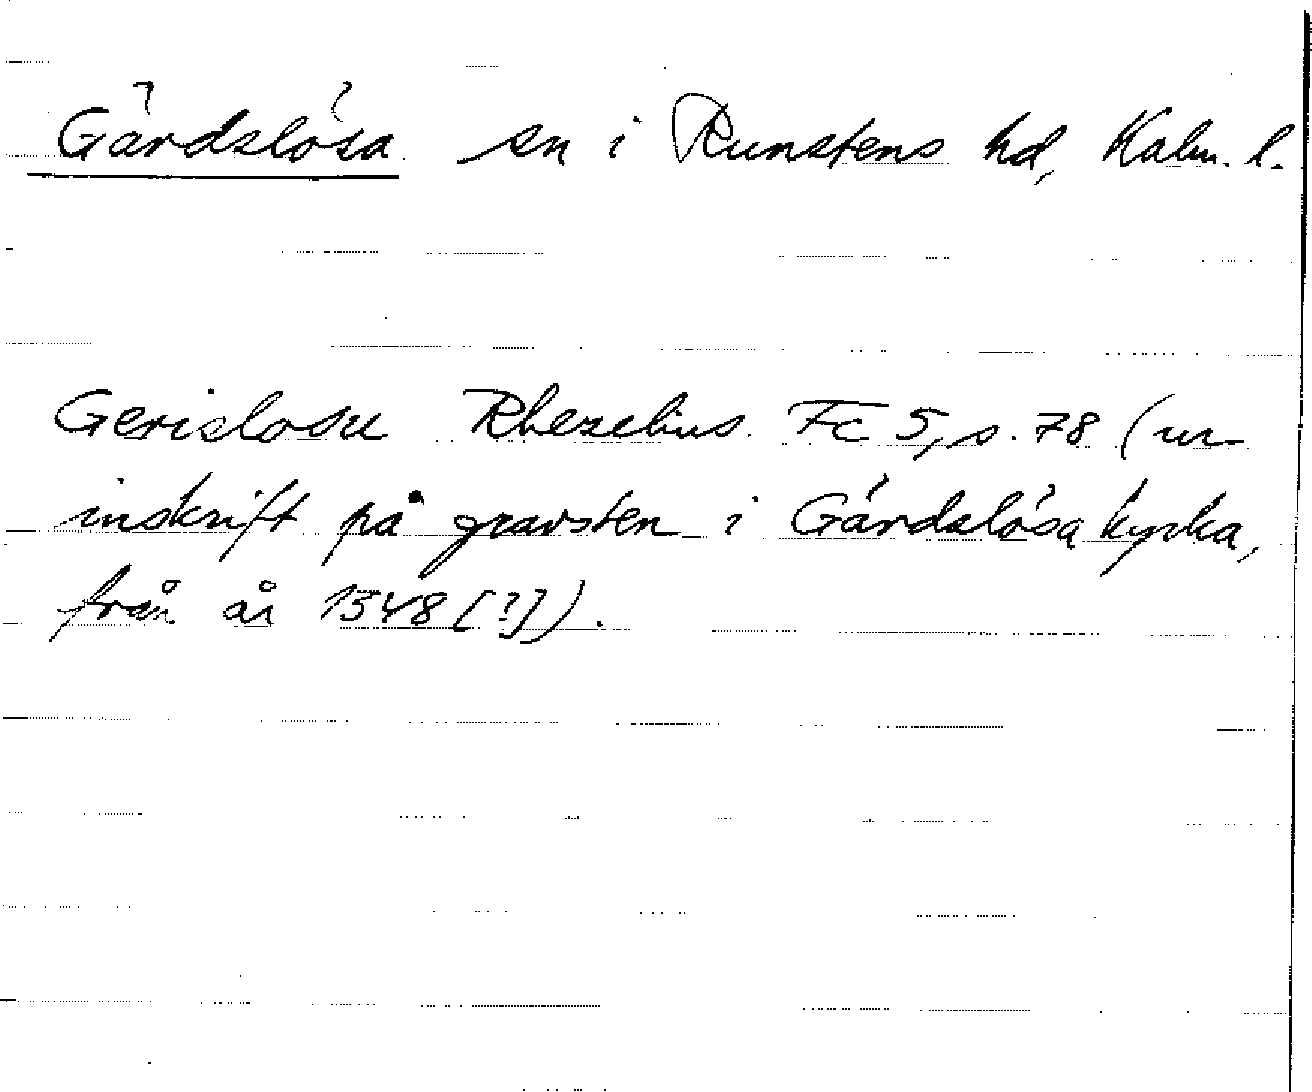 Gärdslösa sn i Runstens hd, Kalm. l.
Gerislosu Rhezelius Fc 5, s. 78 (ur
inskrift på gravsten i Gärdslösa kyrka,
från år 1548 [?]).